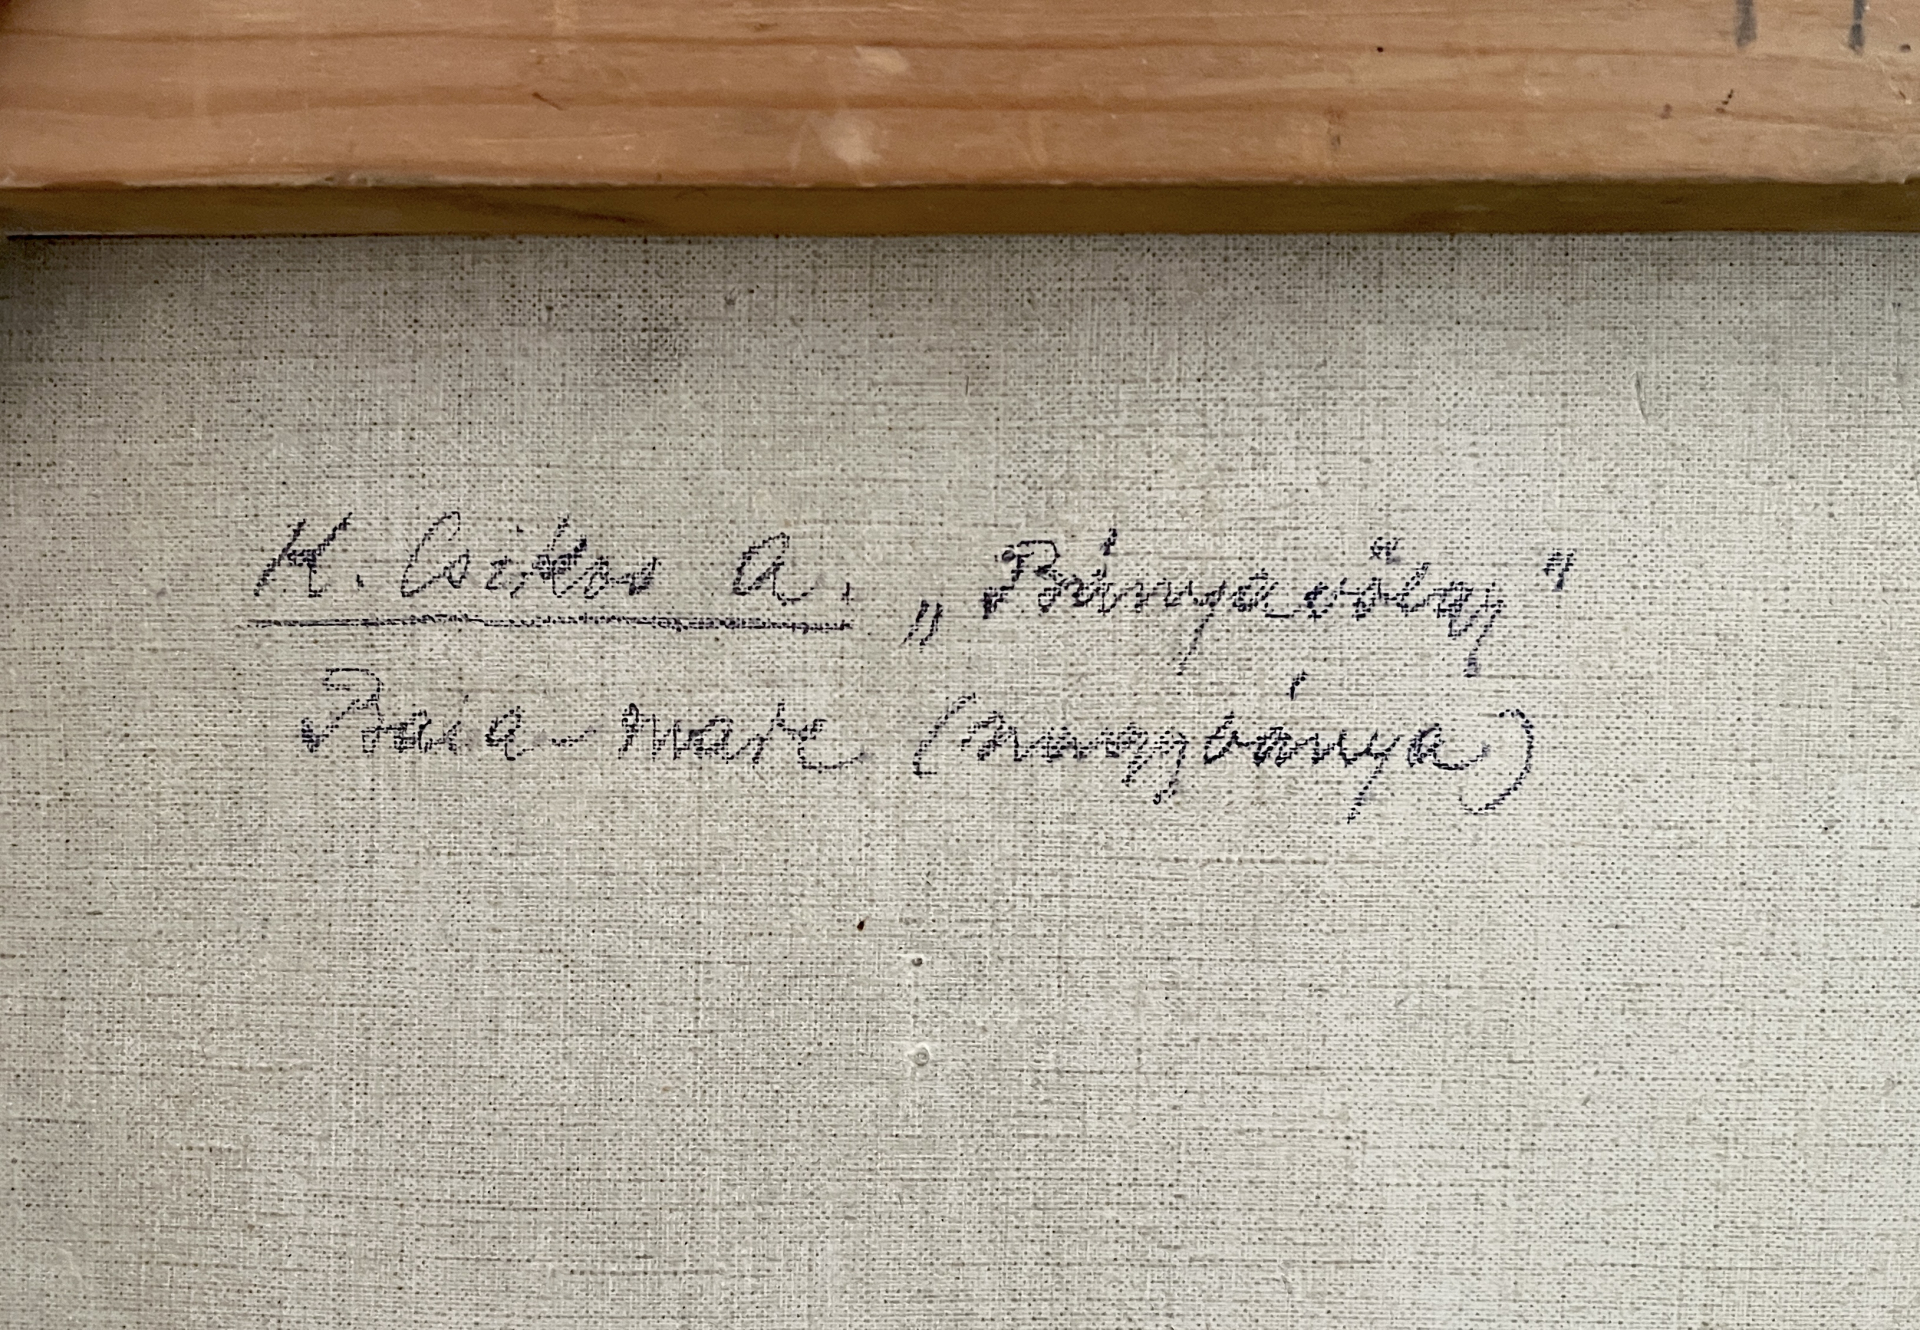 K. Csiklos A. „Bányavölgy"
Baia-mare (nagybánya)